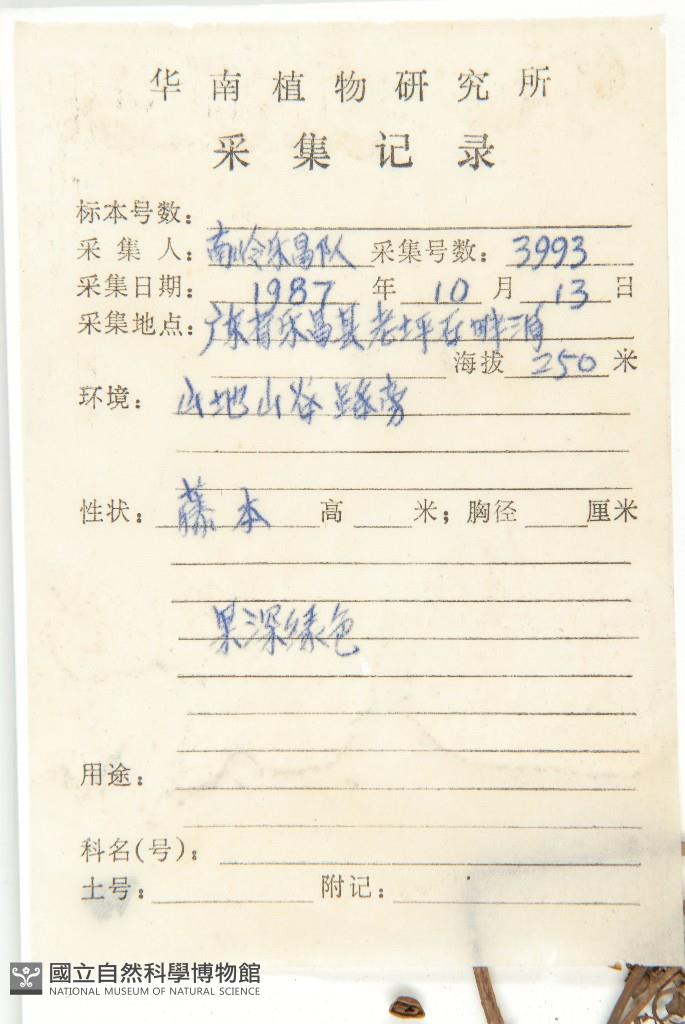 华南植物研究所
采集记录
标本号数：
采集人：南岭乐昌队 采集号数：3993
采集日期：1987年10月13日
采集地点：广东省乐昌县老坪石
海拔 250 米
环境：山地山谷路旁
性状：藤本 高 米；胸径 厘米
果深绿色
用途：
科名(号)：
土号： 附记：
國立自然科學博物館
NATIONAL MUSEUM OF NATURAL SCIENCE